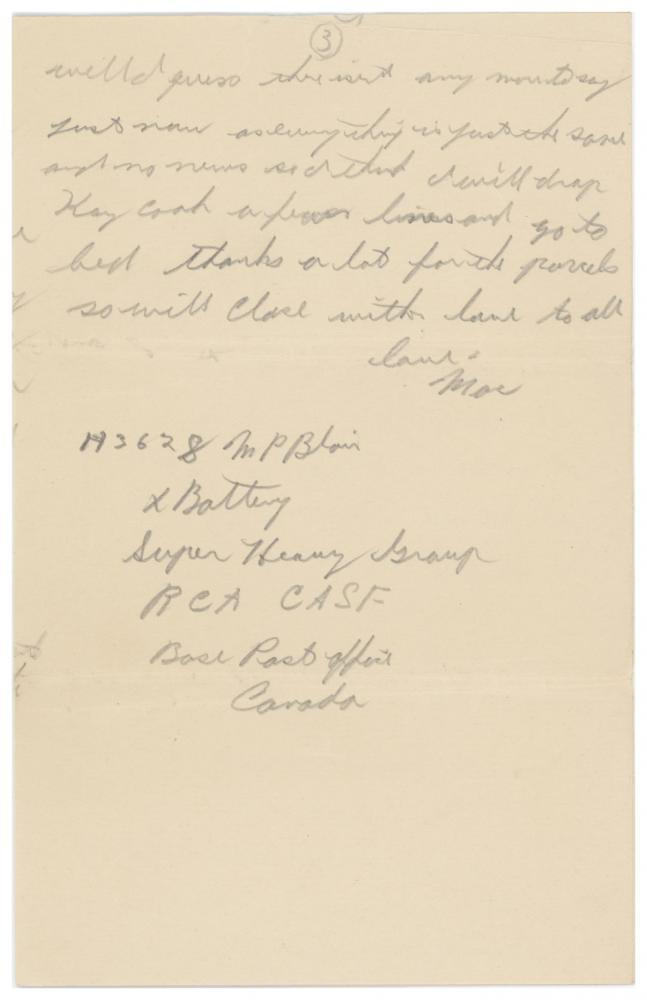 3
well I guess there isn't any more to say
just now as everything is just the same
and no news so I think I will drop
Kay Cook a few lines and go to
bed thanks a lot for the parcels
so will close with love to all
love -
Mac
H3628 M P Blair
X Battery
Super Heavy Group
RCA CASF
Base Post office
Canada